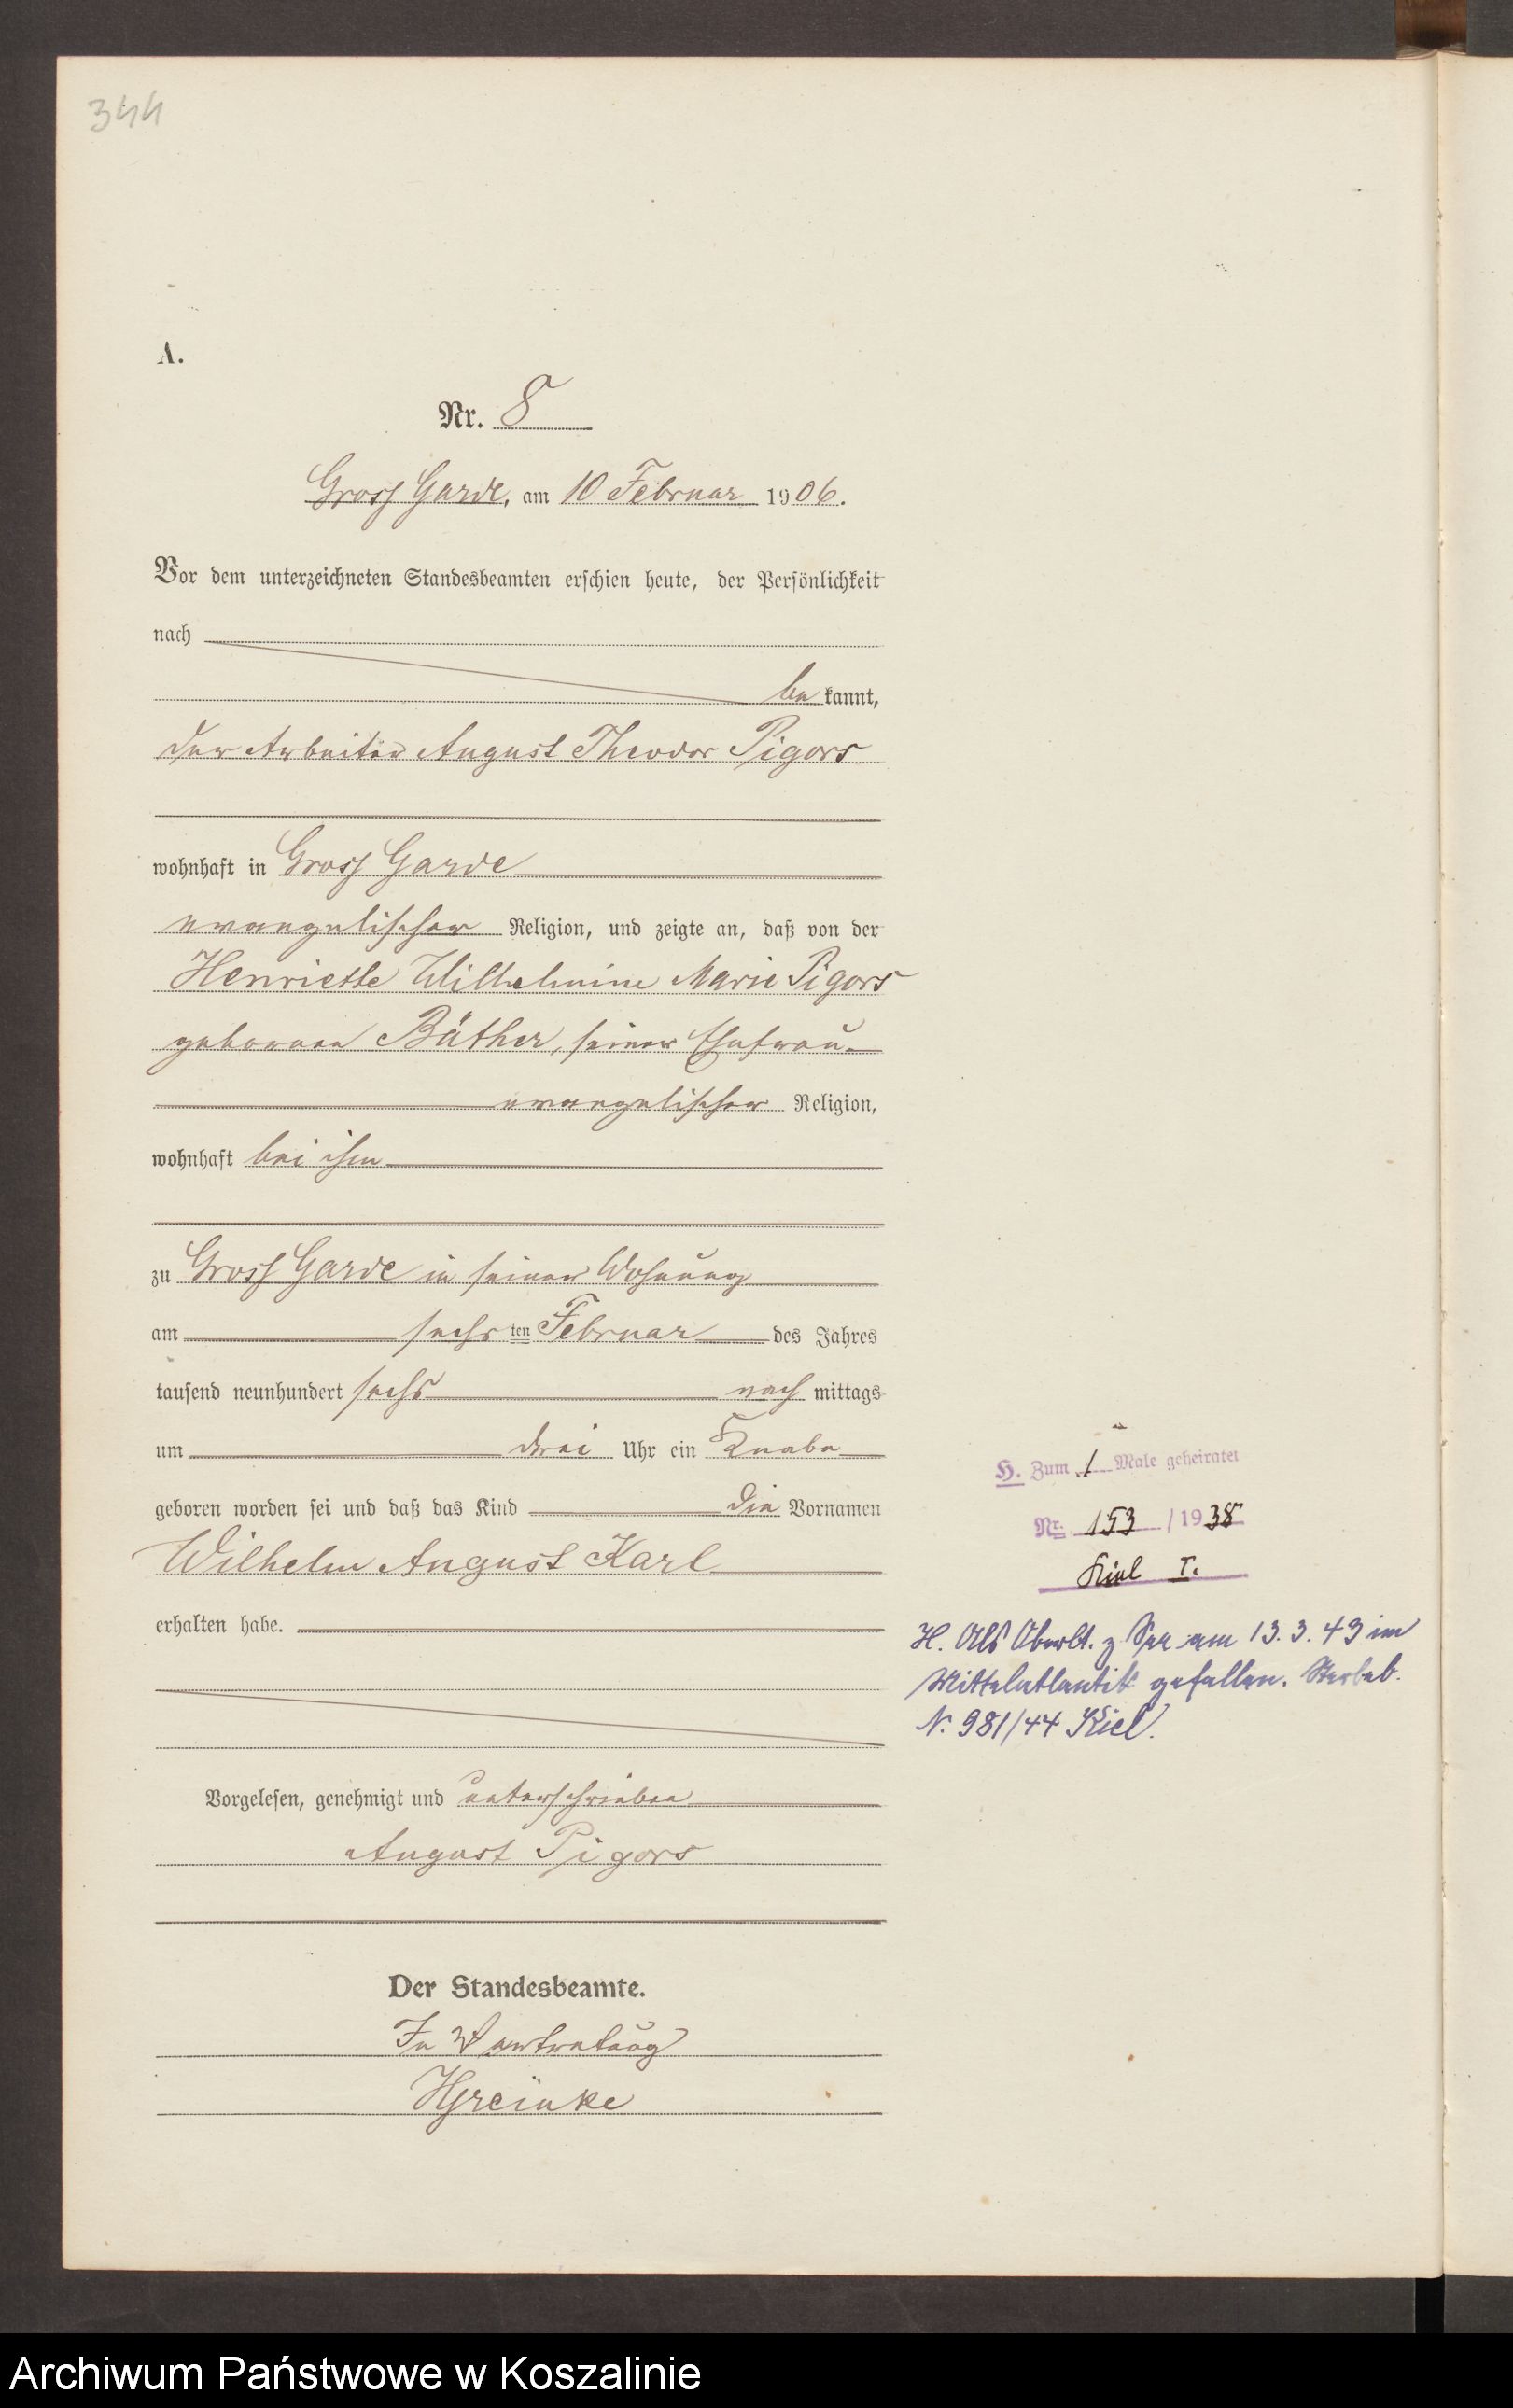 344
A.
Nr. 8
Gross Garde, am 10 Februar 1906.
Vor dem unterzeichneten Standesbeamten erschien heute, der Persönlichkeit
nach
be kannt,
der Arbeiter August Theodor Pigors
wohnhaft in Gross Garde
evangelischer Religion, und zeigte an, daß von der
Henriette Wilhelmine Marie Pigors
geborenen Büther, seiner Ehefrau
evangelischer Religion,
wohnhaft bei ihm
zu Gross Garde in seiner Wohnung
am sechs ten Februar des Jahres
tausend neunhundert sechs nach mittags
um drei Uhr ein Knabe
geboren worden sei und daß das Kind die Vornamen
Wilhelm August Karl
erhalten habe.
H. Zum 1 Male geheiratet
Nr. 153 / 1938
Kiel I.
H. Als Oberlt. z. See am 13.3.43 im
Mittelatlantik gefallen. Sterbeb.
N. 981/44 Kiel.
Vorgelesen, genehmigt und unterschrieben
August Pigors
Der Standesbeamte.
In Vertretung
Archiwum Państwowe w Koszalinie